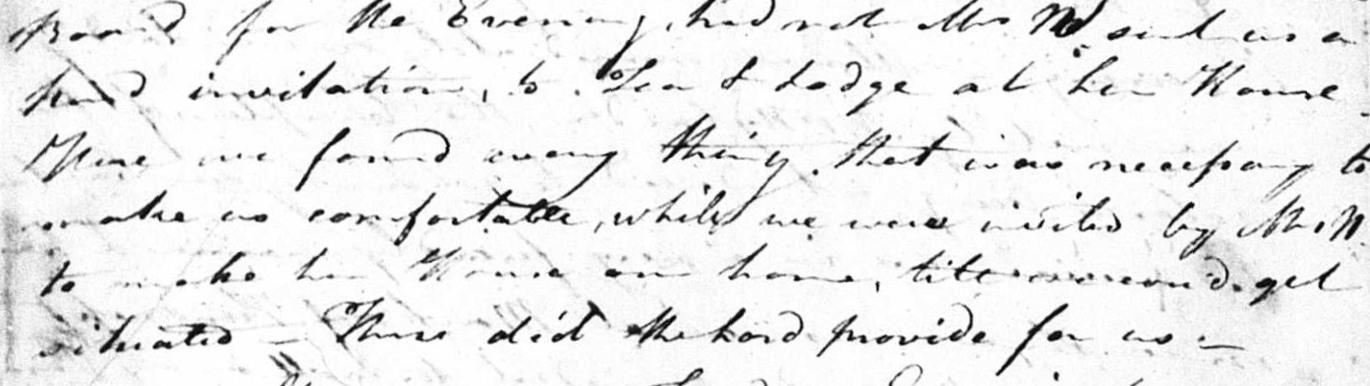 Board for the Evening, had not Mrs W. sent us a
kind invitation, to Tea & Lodge at her House
Here we found every thing that was necessary to
make us comfortable, while we were invited by Mrs W
to make her House our home, till we cou'd get
situated – Thus did the Lord provide for us –